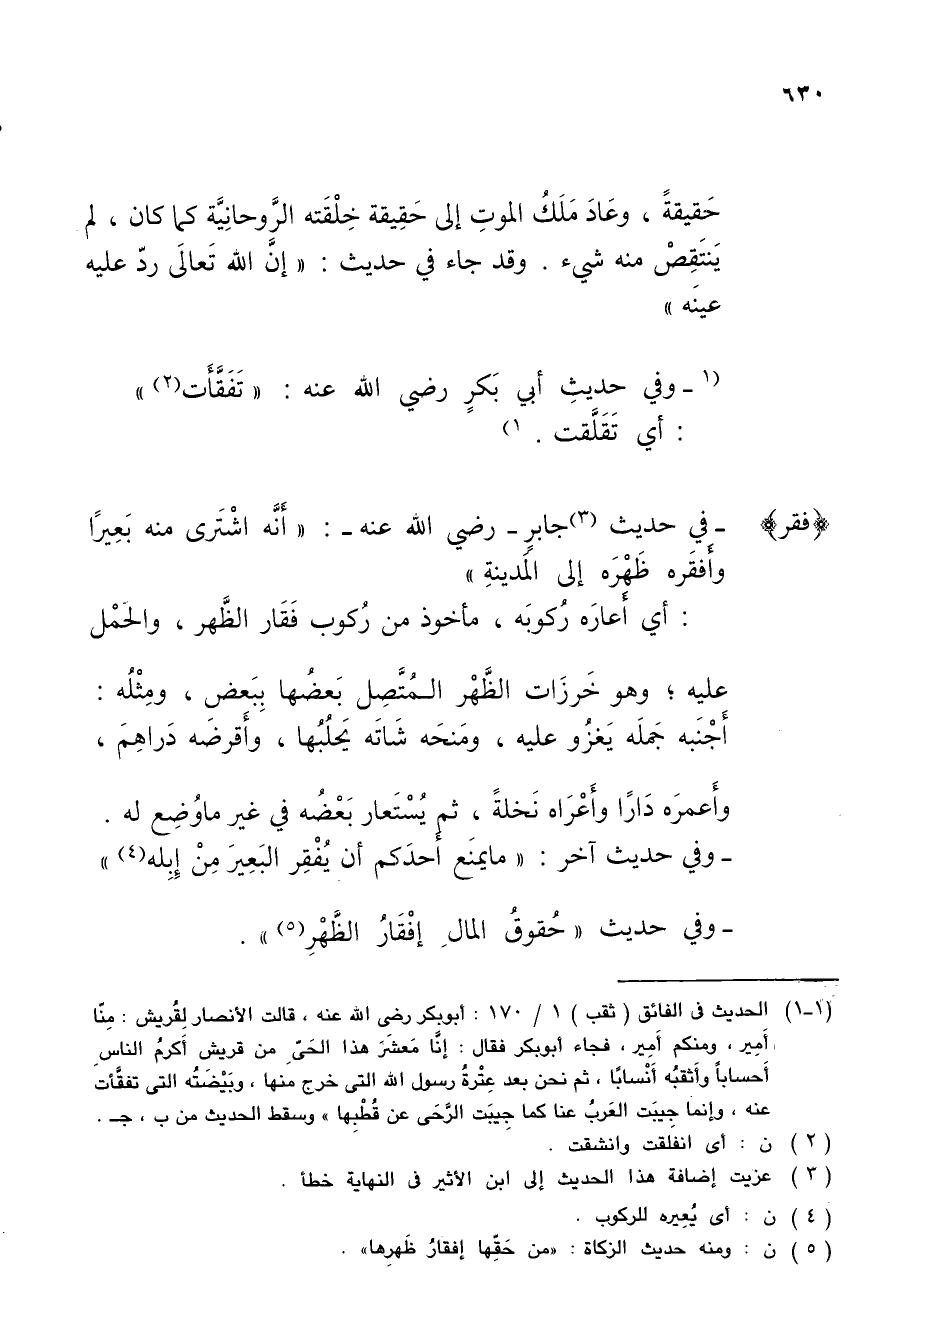 ٦٣٠
حَقيقةً ، وعَادَ مَلَكُ الموتِ إلى حَقِيقة خِلْقَته الرَّوحانِيَّة كما كان ، لم
يَنتَقِصْ منه شيء . وقد جاء في حديث : « إنَّ الله تَعالَى ردّ عليه
عينَه »
(١ ـ وفي حديثِ أبي بَكرٍ رضي الله عنه : « تَفَقَّأَت(٢) »
: أي تَقَلَّقت . ١)
﴿فقر﴾ ـ في حديث (٣)جابرٍ ـ رضي الله عنه ـ : « أَنَّه اشْتَرى منه بَعِيرًا
وأَفقَره ظَهْرَه إلى المَدينةِ »
: أي أَعارَه رُكوبَه ، مأخوذ من رُكوب فَقَار الظَّهر ، والحَمْل
عليه ؛ وهو خَرزَات الظَّهْر المُتَّصِل بَعضُها بِبَعض ، ومِثْلُه :
أَجْنَبه جَملَه يَغزُو عليه ، ومَنحَه شَاتَه يَحلُبُها ، وأَقرضَه دَراهِمَ ،
وأَعمرَه دَارًا وأَعْرَاه نَخلةً ، ثم يُسْتَعار بَعْضُه في غير ماوُضِع له .
ـ وفي حديث آخر : « مايمنَع أَحدَكم أن يُفْقِر البَعِيرَ مِنْ إبِله(٤) »
ـ وفي حديث « حُقوقُ المال إفْقَارُ الظَّهْرِ(٥) » .
(١-١) الحديث فى الفائق ( ثقب ) ١ / ١٧٠ : أبوبكر رضى الله عنه ، قالت الأنصار لِقُريش : مِنّا
أَمِير ، ومنكم أمِير ، فجاء أبوبكر فقال : إنَّا مَعشَرَ هذا الحَيِّ من قريش أكرمُ الناس
أحساباً وأثقبُه أنْسابًا ، ثم نحن بعد عِتْرةُ رسول الله التى خرج منها ، وبَيْضَتُه التى تفقَّأت
عنه ، وإنما جِيبَت العَربُ عنا كما جِيبَت الرَّحَى عن قُطْبِها » وسقط الحديث من ب ، جـ .
(٢) ن : أى انفلقت وانشقت .
(٣) عزيت إضافة هذا الحديث إلى ابن الأثير فى النهاية خطأ .
(٤) ن : أى يُعِيره للركوب .
(٥) ن : ومنه حديث الزكاة : «من حَقِّها إفقارُ ظَهرِها» .